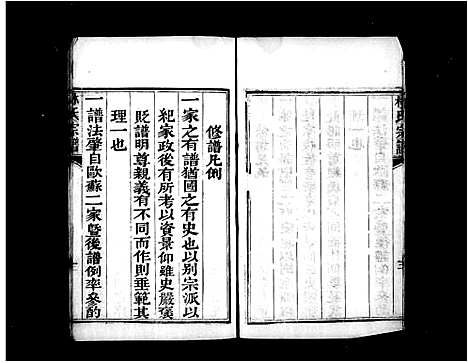 修譜凡例
一家之有譜猶國之有史也以別宗派以
紀家政後有所考以資景仰雖史嚴褒
貶譜明尊親義有不同而作則垂範其
理一也
一譜法肇自歐蘇二家暨後譜例率參酌
林氏宗譜